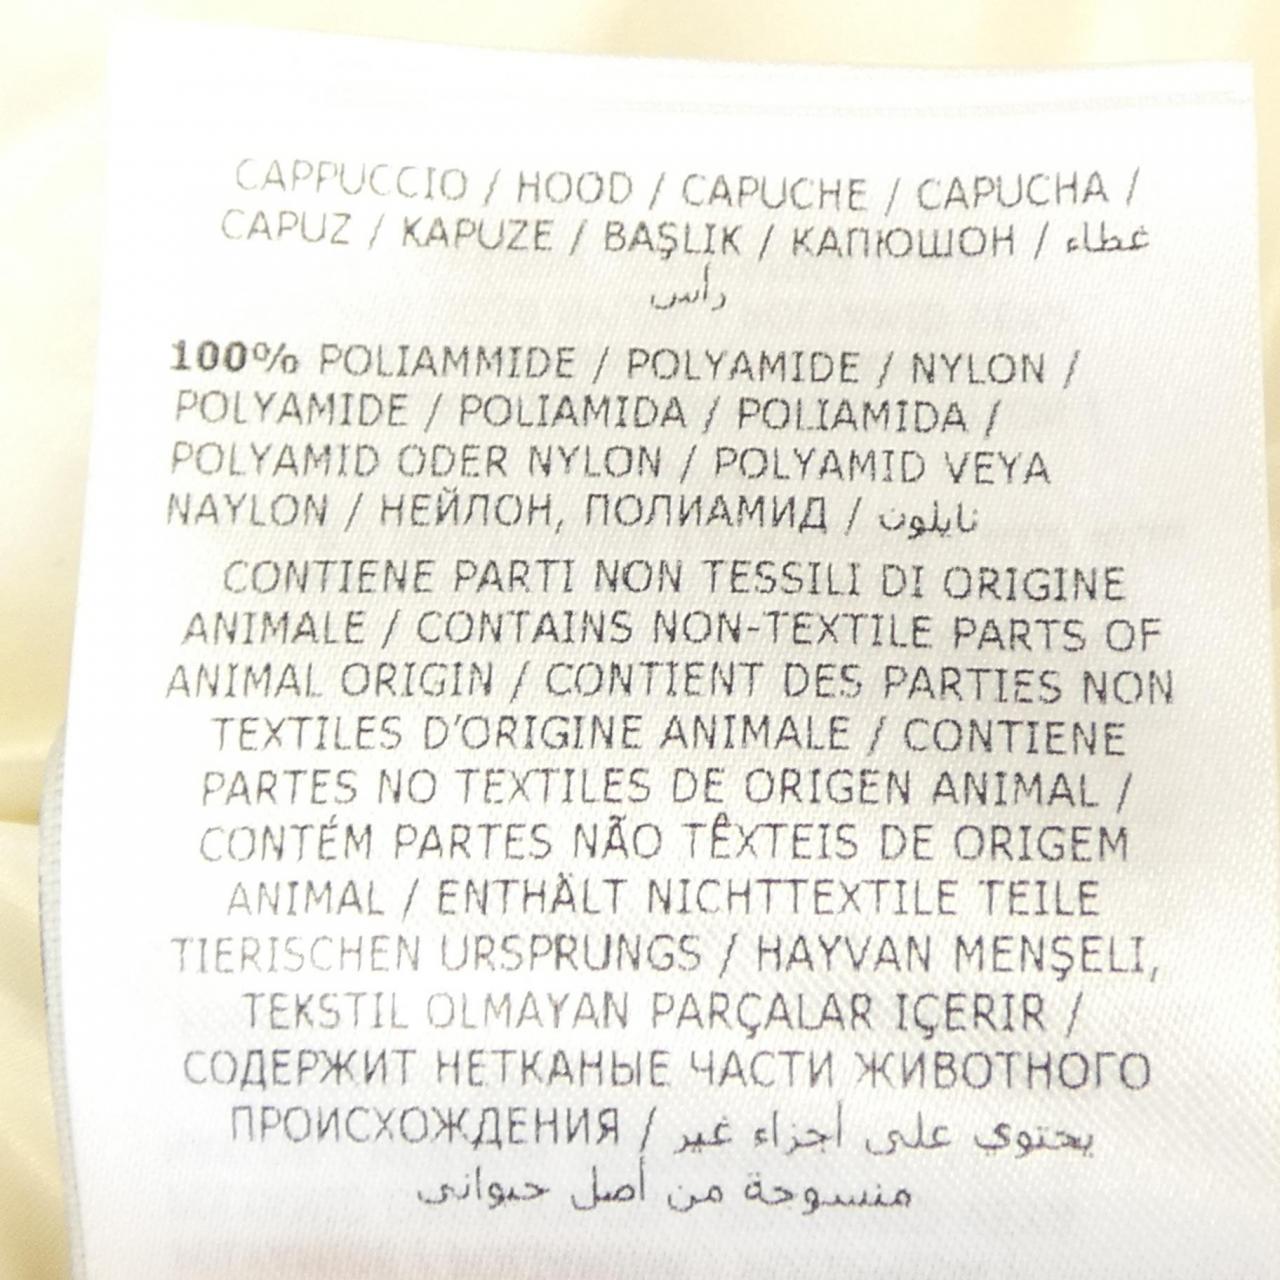 CAPPUCCIO / HOOD / CAPUCHE / CAPUCHA /
CAPUZ / KAPUZE / BAŞLIK / КАПЮШОН / غطاء
رأس
100% POLIAMMIDE / POLYAMIDE / NYLON /
POLYAMIDE / POLIAMIDA / POLIAMIDA /
POLYAMID ODER NYLON / POLYAMID VEYA
NAYLON / НЕЙЛОН, ПОЛИАМИД / نايلون
CONTIENE PARTI NON TESSILI DI ORIGINE
ANIMALE / CONTAINS NON-TEXTILE PARTS OF
ANIMAL ORIGIN / CONTIENT DES PARTIES NON
TEXTILES D’ORIGINE ANIMALE / CONTIENE
PARTES NO TEXTILES DE ORIGEN ANIMAL /
CONTÉM PARTES NÃO TÊXTEIS DE ORIGEM
ANIMAL / ENTHÄLT NICHTTEXTILE TEILE
TIERISCHEN URSPRUNGS / HAYVAN MENŞELI,
TEKSTIL OLMAYAN PARÇALAR IÇERIR /
СОДЕРЖИТ НЕТКАНЫЕ ЧАСТИ ЖИВОТНОГО
ПРОИСХОЖДЕНИЯ / يحتوي على أجزاء غير
منسوجة من أصل حيوانى